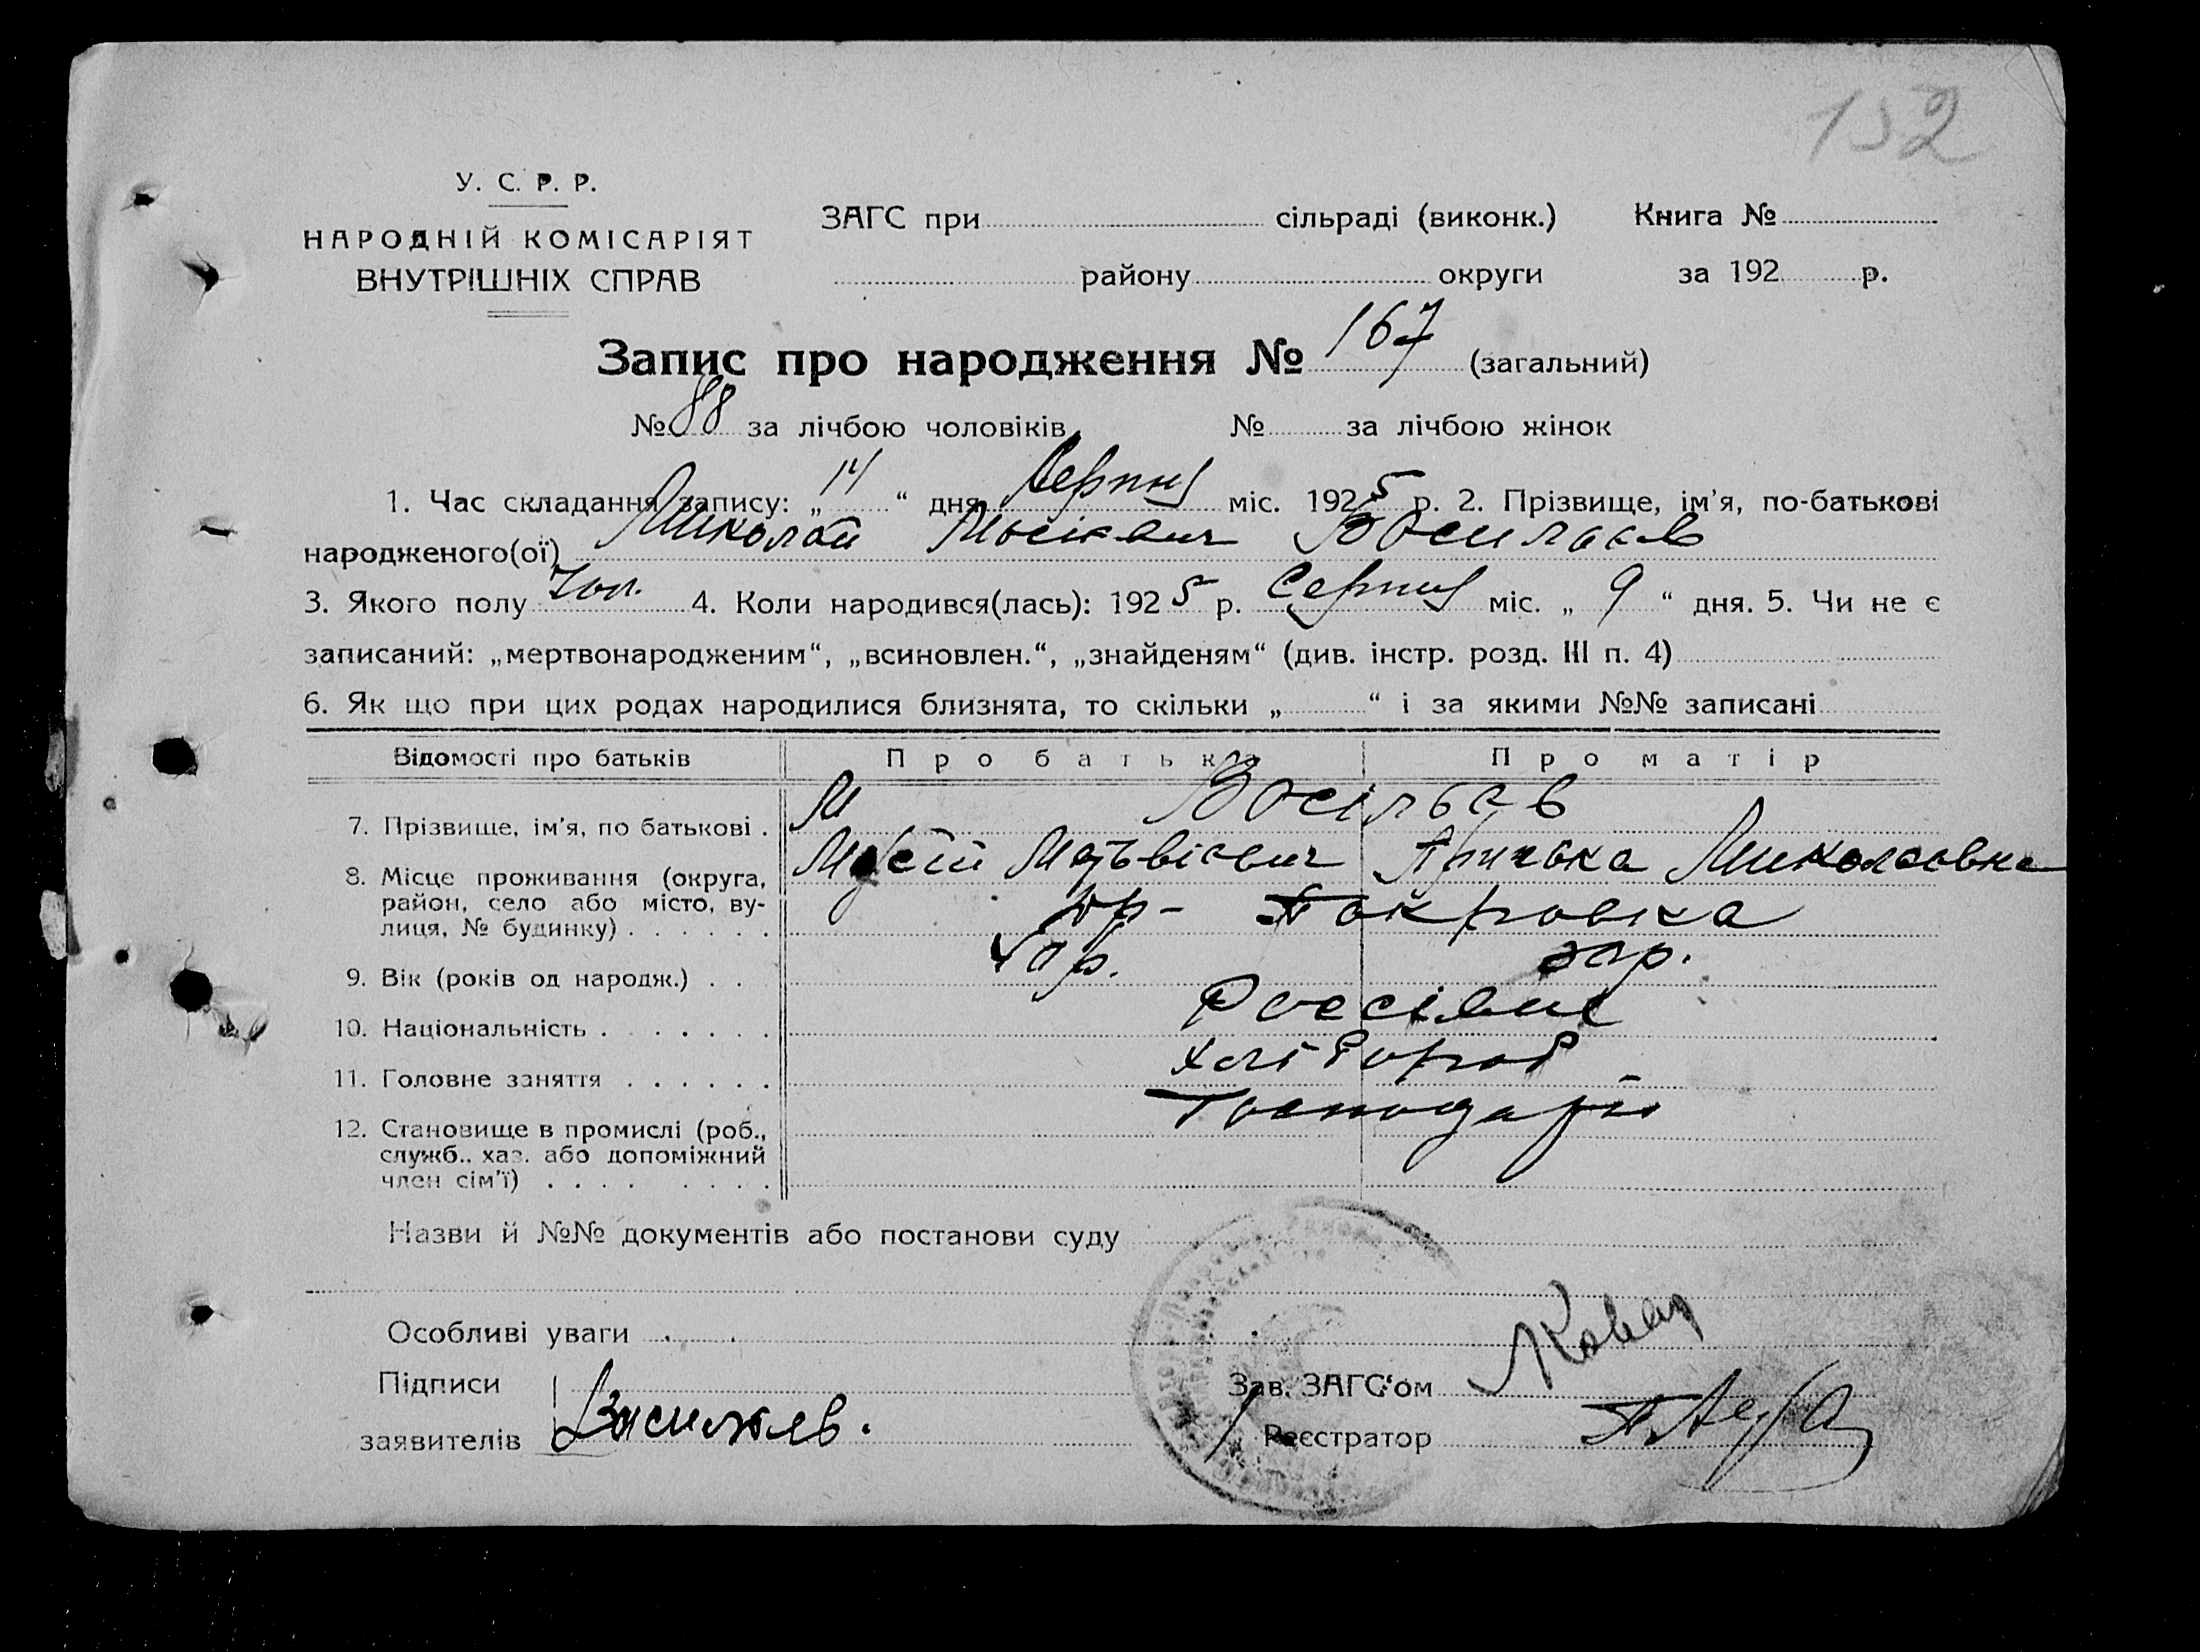 152
У. С. Р. Р.
НАРОДНІЙ КОМІСАРІЯТ
ВНУТРІШНІХ СПРАВ
ЗАГС при сільраді (виконк.) Книга №
району округи за 192 р.
Запис про народження № 167 (загальний)
№ 88 за лічбою чоловіків № за лічбою жінок
1. Час складання запису: „ 14 “ дня Серпня міс. 1925 р. 2. Прізвище, ім’я, по-батькові
народженого(ої) Миколай
3. Якого полу Чол. 4. Коли народився(лась): 1925 р. Серпня міс. „ 9 “ дня. 5. Чи не є
записаний: „мертвонародженим“, „всиновлен.“, „знайденям“ (див. інстр. розд. III п. 4)
6. Як що при цих родах народилися близнята, то скільки „ “ і за якими №№ записані
Відомості про батьків Про батька Про матір
7. Прізвище, ім’я, по батькові . Васільєв
Мусій Матьвієвич Миколаовна
8. Місце проживання (округа,
район, село або місто, ву-
лиця, № будинку) . . . . . . Покровка
9. Вік (років од народж.) . .
10. Національність . . . . . .
11. Головне заняття . . . . . . Хлібороб
12. Становище в промислі (роб.,
служб., хаз. або допоміжний
член сім’ї) . . . . . . . . Господарі
Назви й №№ документів або постанови суду
Особливі уваги
Підписи
заявителів Васильев.
Зав. ЗАГС‘ом
Реєстратор